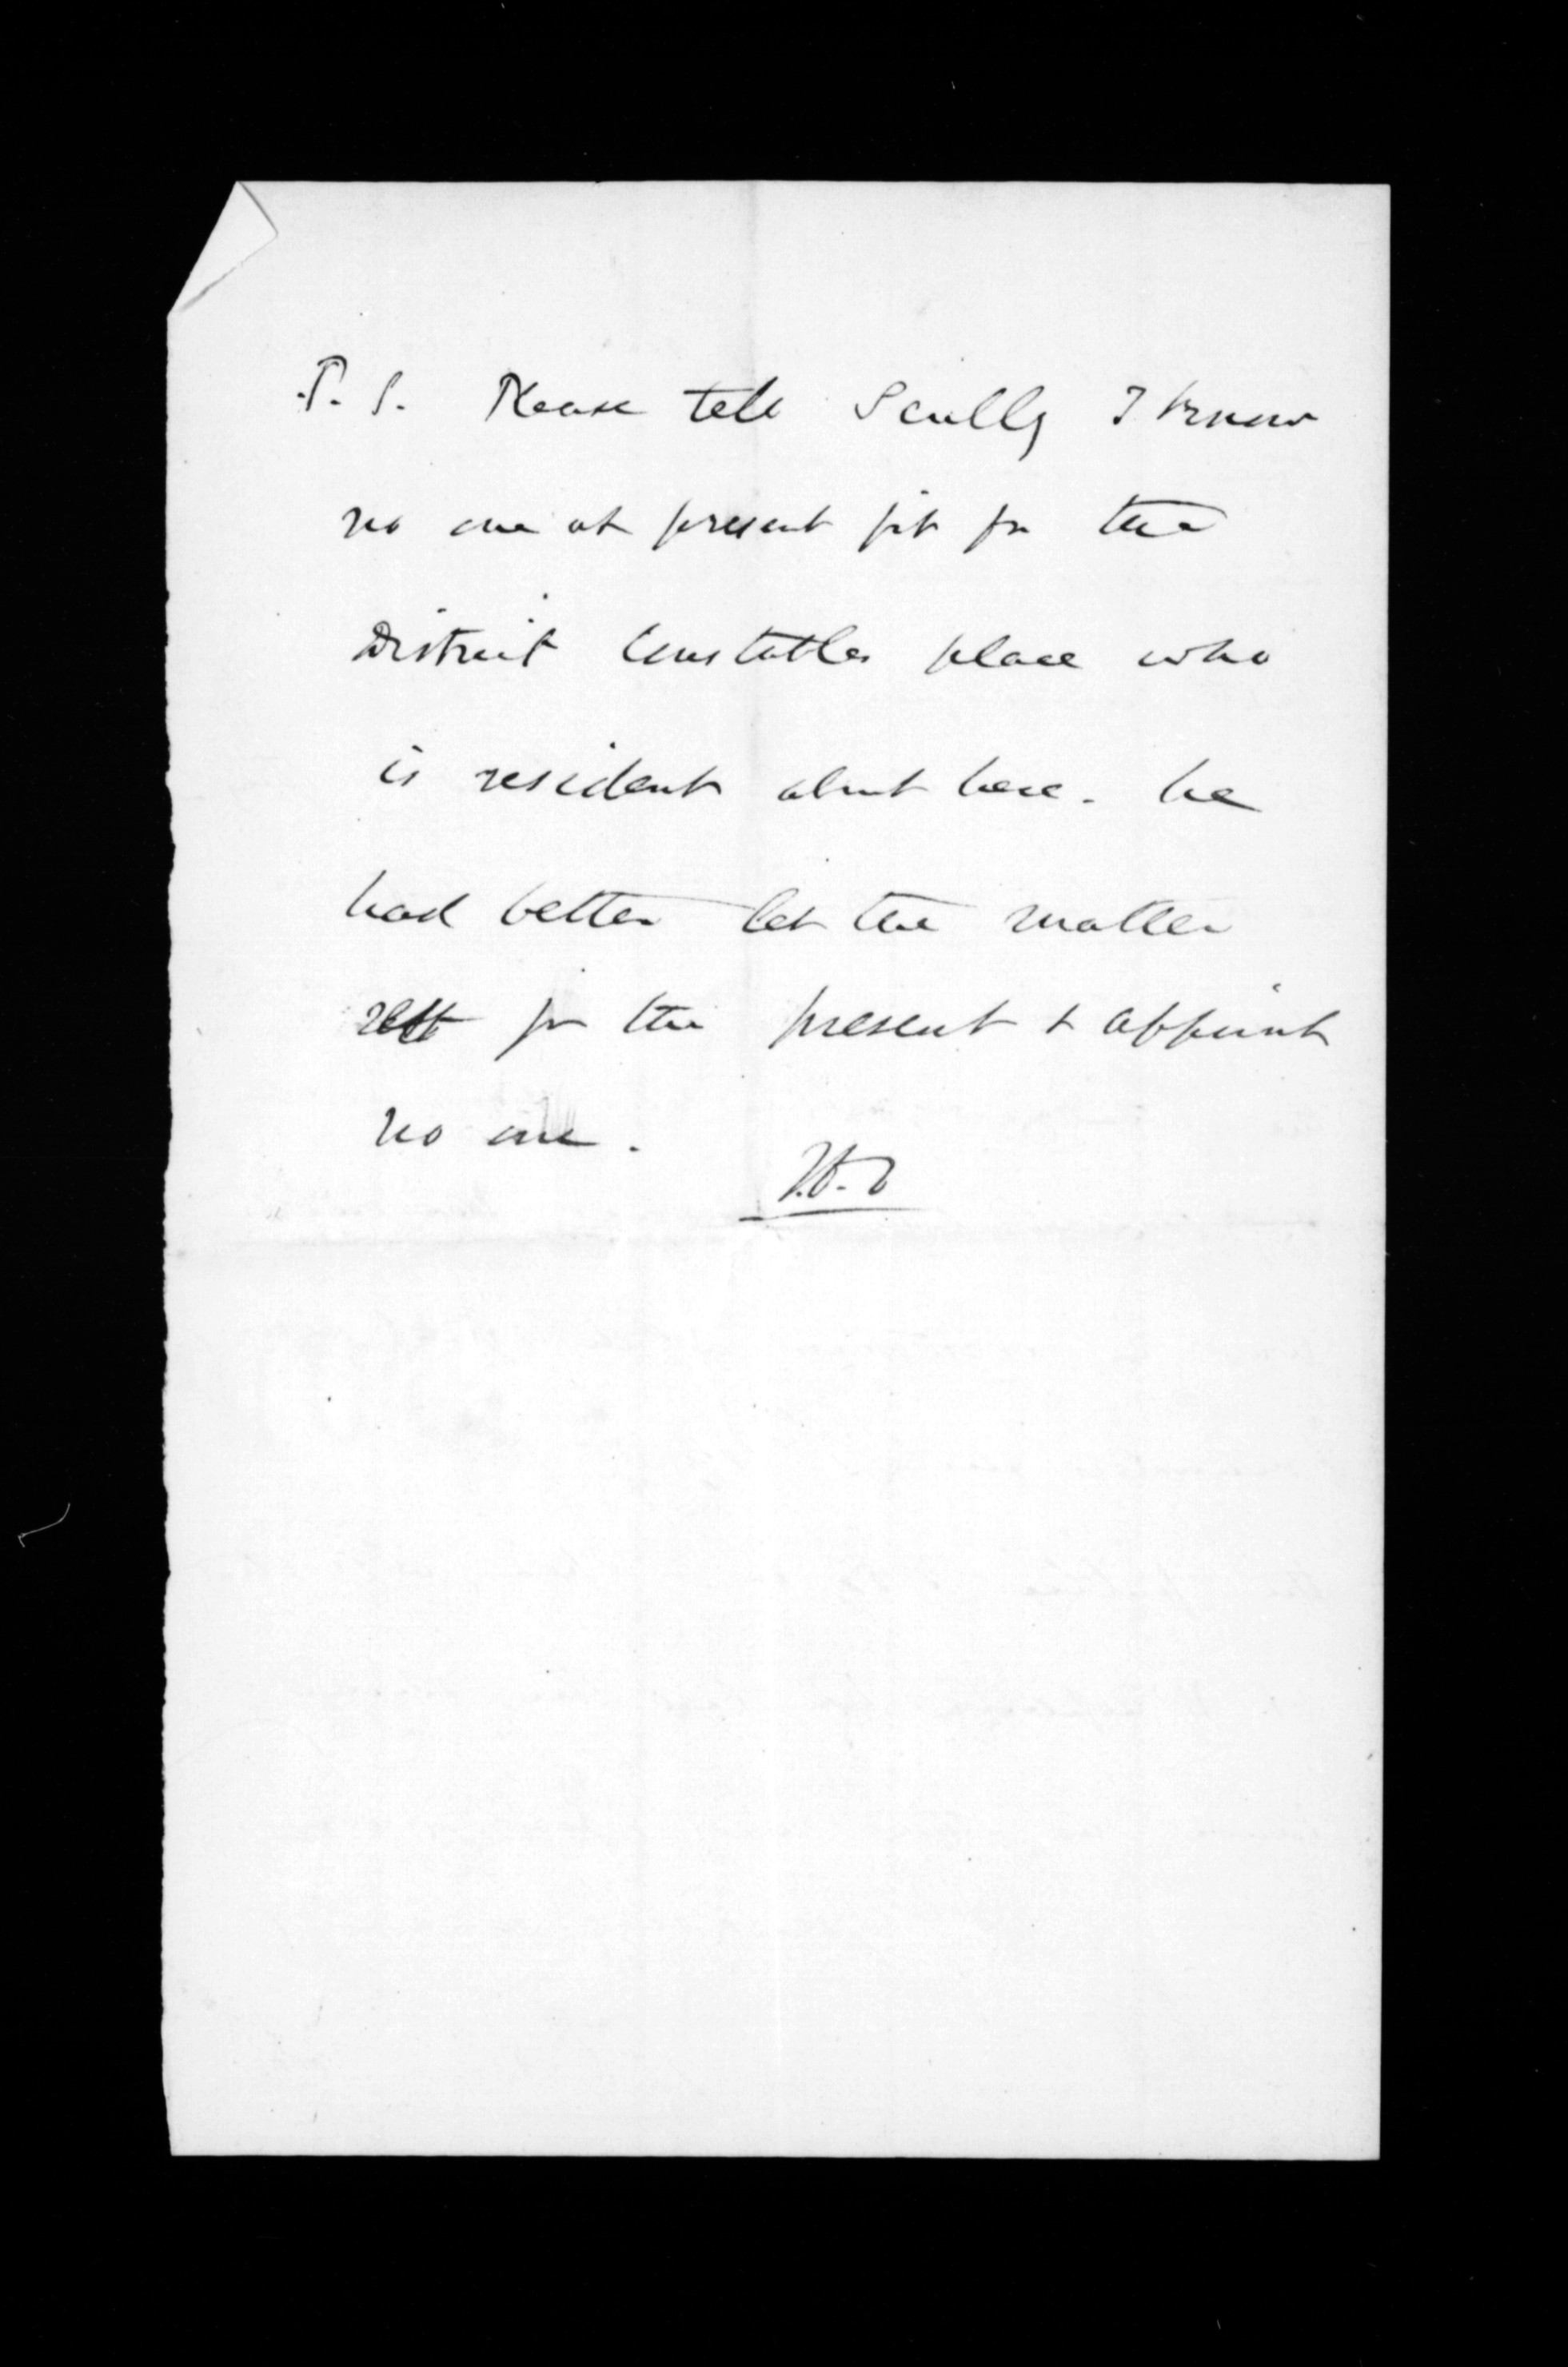 P.S. Please tell Scully I know
no one at present fit for the
District Constables place who
is resident about here. he
had better let the matter
rest for the present & appoint
no one.